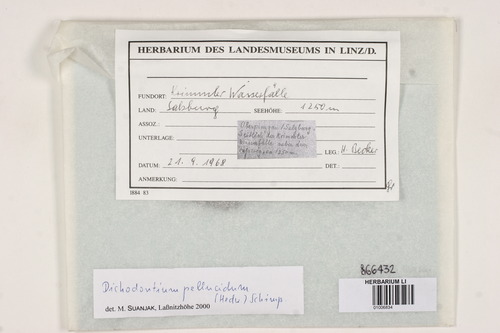 HERBARIUM DES LANDESMUSEUMS IN LINZ/D.
FUNDORT: Krimmler Wasserfälle
LAND: Salzburg SEEHÖHE: 1250 m
ASSOZ.:
UNTERLAGE:
LEG.: H. Becker
DATUM: 21. 9. 1968 DET.:
ANMERKUNG:
I884 83
Dichodontium pellucidum
(Hedw.) Schimp.
det. M. SUANJAK, Laßnitzhöhe 2000
866432
HERBARIUM LI